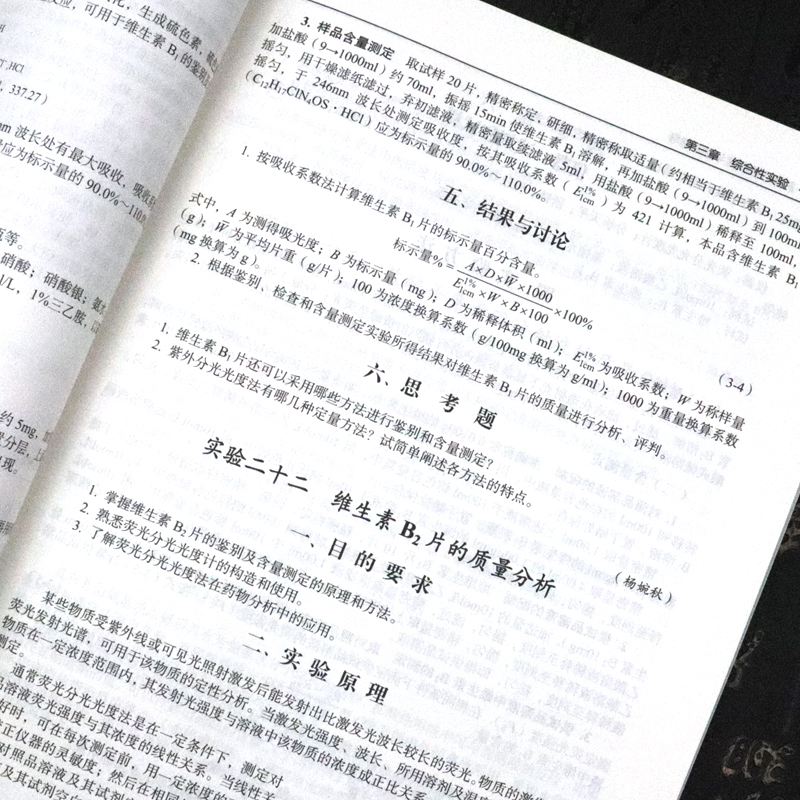 化,生成硫色素,
反应,可用于维生素 B₁ 的鉴别
337.27)
nm 波长处有最大吸收,吸收
应为标示量的 90.0%~110.0
瓶等。
硝酸;硝酸银;氨
1%三乙胺,
约 5mg,
置分层,
第三章 综合性实验
3. 样品含量测定 取试样 20 片,精密称定,研细,精密称取适量(约相当于维生素 B₁ 25mg
加盐酸(9→1000ml)约 70ml,振摇 15min 使维生素 B₁ 溶解,再加盐酸(9→1000ml)到 100ml
摇匀,用干燥滤纸滤过,弃初滤液,精密量取续滤液 5ml,用盐酸(9→1000ml)稀释至 100ml,
摇匀,于 246nm 波长处测定吸收度,按其吸收系数(E₁cm¹%)为 421 计算,本品含维生素 B₁
(C₁₂H₁₇ClN₄OS·HCl)应为标示量的 90.0%~110.0%。
五、结果与讨论
1. 按吸收系数法计算维生素 B₁ 片的标示量百分含量。
标示量% = A×D×W̄×1000 / E₁cm¹%×W×B×100 ×100%
(3-4)
式中,A 为测得吸光度;B 为标示量(mg);D 为稀释体积(ml);E₁cm¹% 为吸收系数;W 为称样量
(g);W̄ 为平均片重(g/片);100 为浓度换算系数(g/100mg 换算为 g/ml);1000 为重量换算系数
(mg 换算为 g)。
2. 根据鉴别、检查和含量测定实验所得结果对维生素 B₁ 片的质量进行分析、评判。
六、思考题
1. 维生素 B₁ 片还可以采用哪些方法进行鉴别和含量测定?
2. 紫外分光光度法有哪几种定量方法?试简单阐述各方法的特点。
(杨婉秋)
实验二十二 维生素 B₂ 片的质量分析
一、目的要求
1. 掌握维生素 B₂ 片的鉴别及含量测定的原理和方法。
2. 熟悉荧光分光光度计的构造和使用。
3. 了解荧光分光光度法在药物分析中的应用。
二、实验原理
某些物质受紫外线或可见光照射激发后能发射出比激发光波长较长的荧光。物质的激
荧光发射光谱,可用于该物质的定性分析。当激发光强度、波长、所用溶剂及温度
物质在一定浓度范围内,其发射光强度与溶液中该物质的浓度成正比关系
测定。
通常荧光分光光度法是在一定条件下,测定对
品溶液荧光强度与其浓度的线性关系。当线性关
好时,可在每次测定前,用一定浓度的
正仪器的灵敏度;然后在相同
对照品溶液及其试剂
及其试剂空白